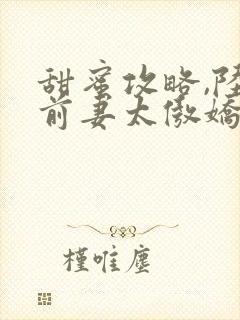 甜蜜攻略,陆
前妻太傲嬌
槿唯塵